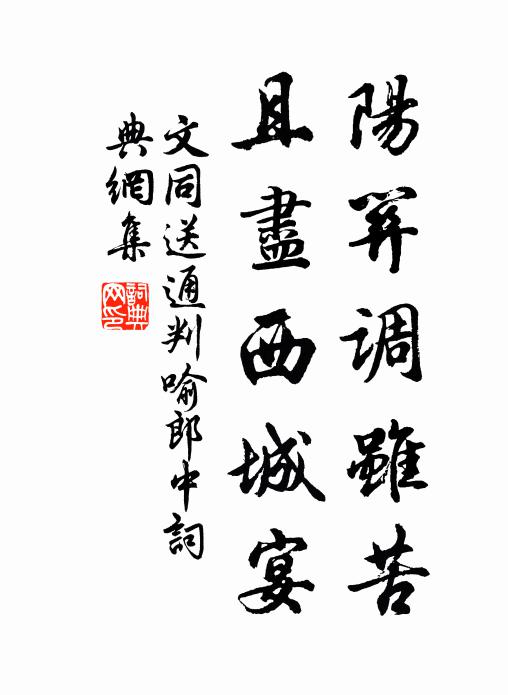 陽關調雖苦
且盡西城宴
文同送通判喻郎中詞
典網集
詞典網印